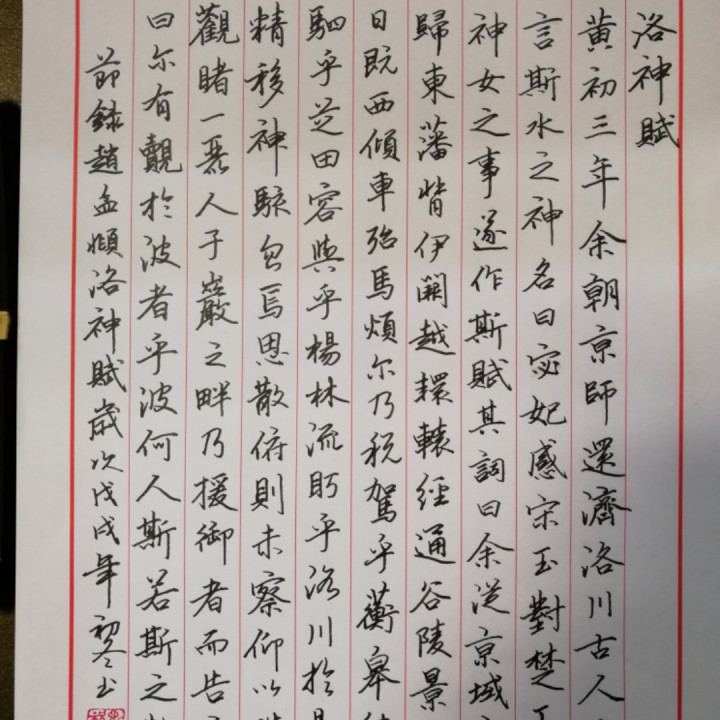 洛神賦
黄初三年余朝京師還濟洛川古人
言斯水之神名曰宓妃感宋玉對楚王
神女之事遂作斯賦其詞曰余從京域
歸東藩背伊闕越轘轅經通谷陵景
日既西傾車殆馬煩尔乃税駕乎蘅皋
駟乎芝田容與乎楊林流眄乎洛川於
精移神駭忽焉思散俯則未察仰以
觀睹一麗人于巖之畔乃援御者而告
曰尔有覿於彼者乎彼何人斯若斯之
節録趙孟頫洛神賦歲次戊戌年初冬書